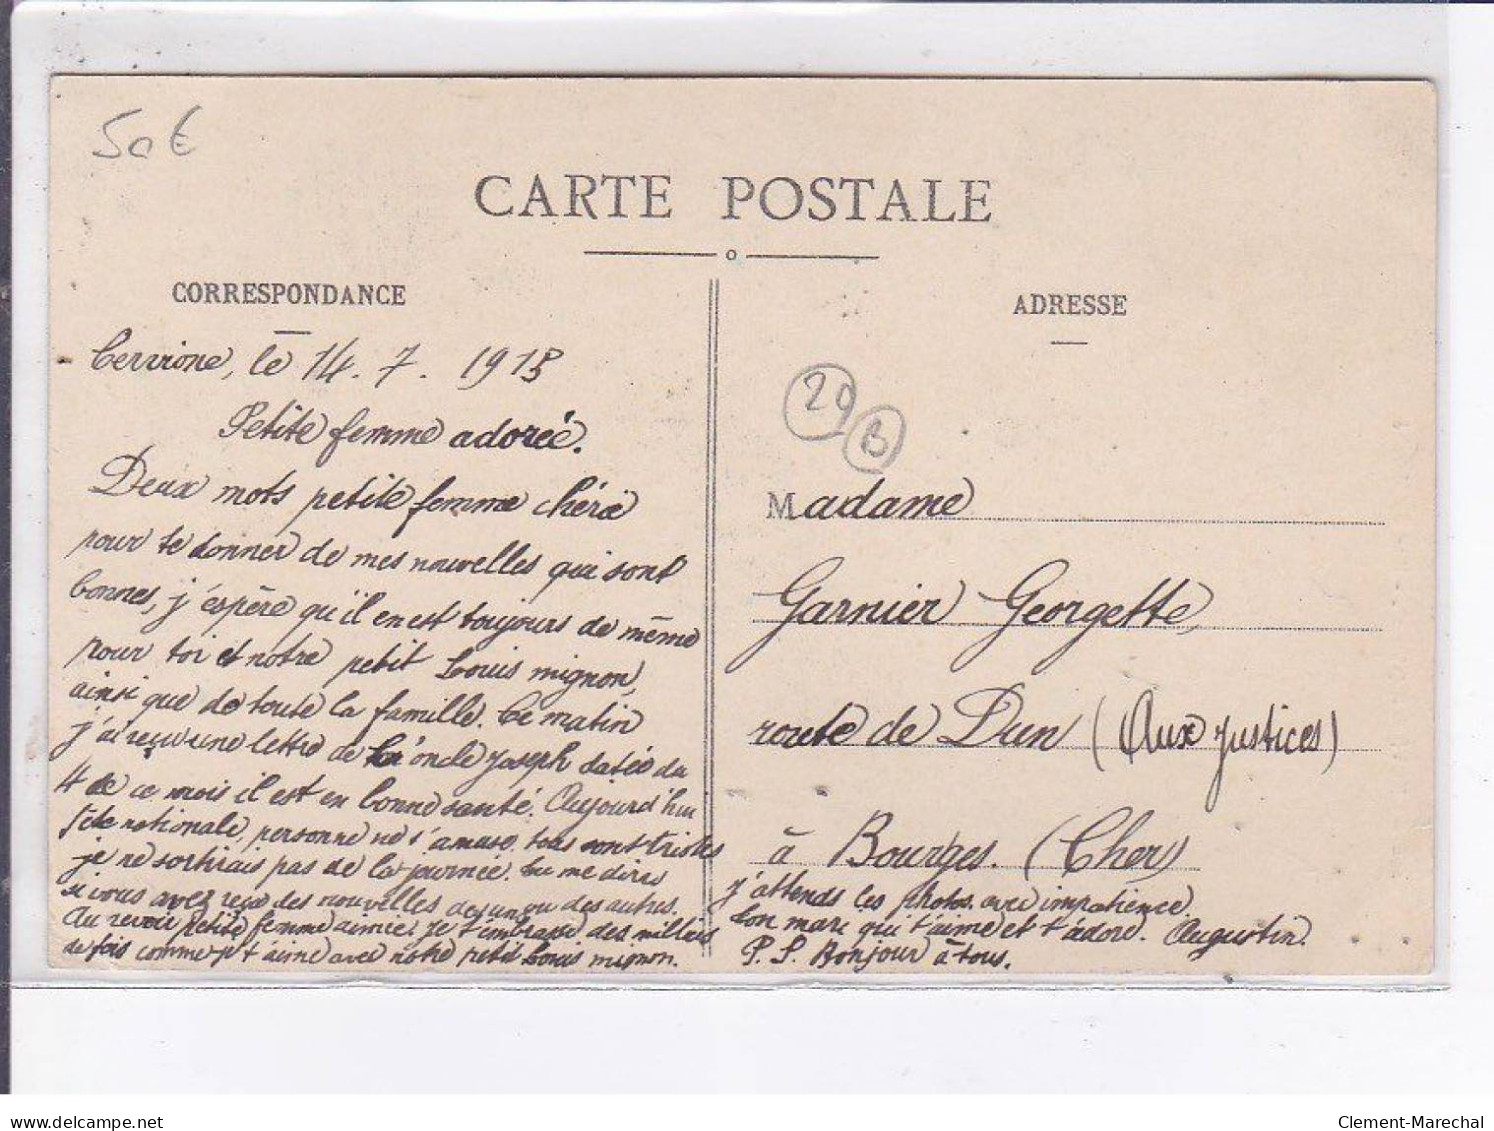 50€
CARTE POSTALE
CORRESPONDANCE
Cervione, le 14. 7. 1915
Petite femme adorée.
Deux mots petite femme chérie
pour te donner de mes nouvelles qui sont
bonnes, j'espère qu'il en est toujours de même
pour toi et notre petit Louis mignon,
ainsi que de toute la famille. Ce matin
j'ai reçu une lettre de l'oncle joseph datée du
4 de ce mois il est en bonne santé. Aujourd'hui
fête nationale, personne ne s'amuse, tous sont tristes
je ne sortirais pas de la journée. tu me diras
si vous avez reçu des nouvelles des uns ou des autres.
Au revoir petite femme aimée, je t'embrasse des milliers
de fois comme je t'aime avec notre petit Louis mignon.
ADRESSE
20
B
Madame
Garnier Georgette,
route de Dun (Aux justices)
à Bourges. (Cher)
j'attends les photos avec impatience.
Ton mari qui t'aime et t'adore. Augustin.
P. S. Bonjour à tous.
Clement-Marechal
www.delcampe.net